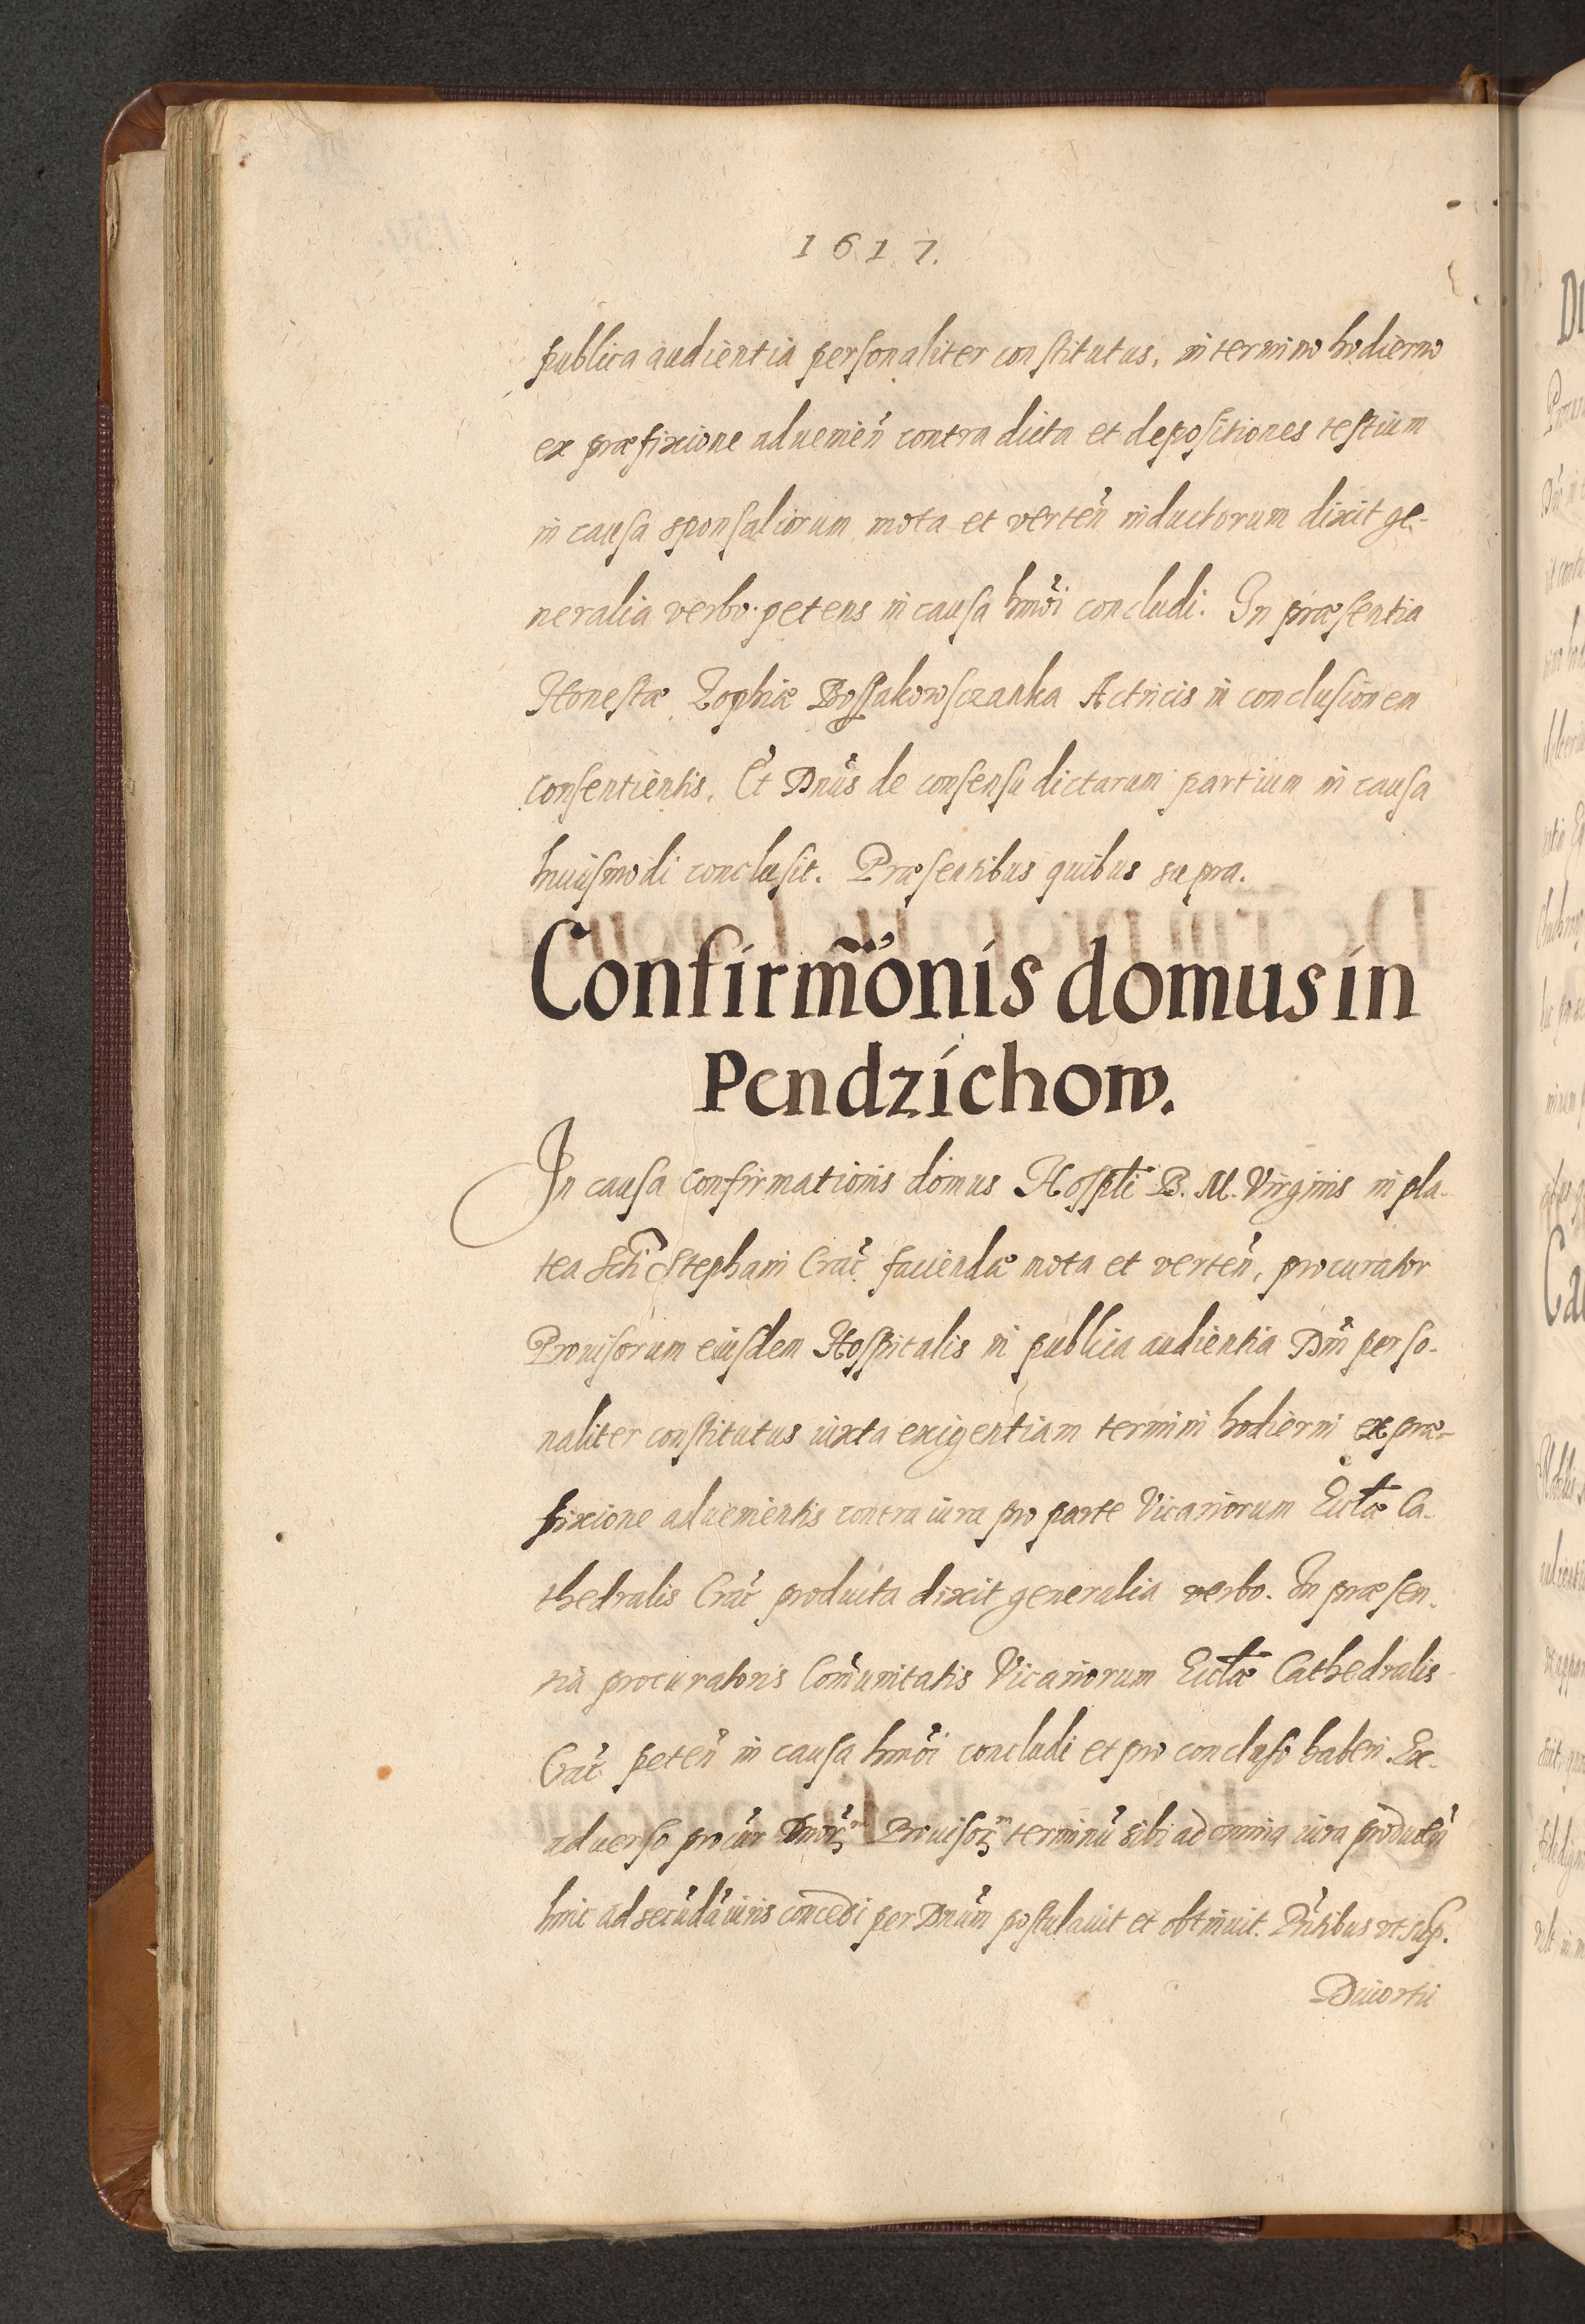 1617.
publica audientia personaliter constitutus, in termino hodierno
ex præfixione aduenien̄ contra dicta et depositiones testium
in causa sponsaliorum mota et verten̄ inductorum dixit ge-
neralia verbo petens in causa hmōi concludi. In præsentia
Honestæ Zophiæ Bossakowsczanka Actricis in conclusionem
consentientis. Et Dnūs de consensu dictarum partium in causa
huiusmodi conclusit. Præsentibus quibus supra.
Confirmōnis domus in
Pendzichow.
In causa confirmationis domus Hosptli B. M. Virginis in pla-
tea Scti Stephani Crac̄ faciendæ mota et verten̄, procurator
Prouisorum eiusdem Hospitalis in publica audientia Dnī perso-
naliter constitutus iuxta exigentiam termini hodierni ex præ-
fixione aduenientis contra iura pro parte Vicariorum Ecclæ Ca-
thedralis Crac̄ producta dixit generalia verbo. In præsen-
tia procuratoris Com̄unitatis Vicariorum Ecclæ Cathedralis
Crac̄ peten̄ in causa hmōi concludi et pro concluso haberi. Ex
aduerso procūr Dnorꝝ Prouisorꝝ terminū sibi ad omnia iura producen̄
hinc ad secūdā iuris concedi per Dnūm postulauit et obtinuit. Pn̄tibus vt sup.
Diuortii